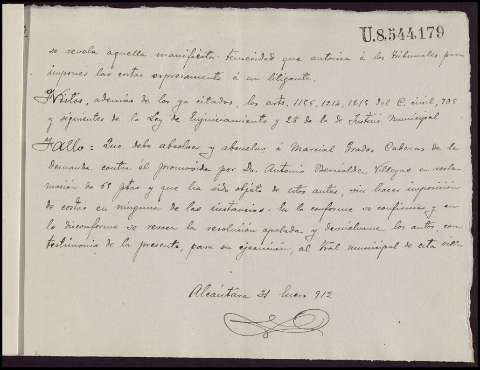 U.8.544.179
se revela aquella manifiesta temeridad que autoriza á los Tribunales para
imponer las costas expresamente á un litigante.
Vistos, además de los ya citados, los arts. 1156, 1214, 1815 del C. civil, 709
y siguientes de la Ley de Enjuiciamiento y 28 de la de Justicia Municipal
Fallo: Que debo absolver y absuelvo á Marcial Grados Cadenas de la
demanda contra él promovida por Dn. Antonio Bernáldez Villegas en recla-
mación de 65 ptas y que ha sido objeto de estos autos, sin hacer imposición
de costas en ninguna de las instancias. En lo conforme se confirma y en
lo disconforme se revoca la resolución apelada y devuélvanse los autos, con
testimonio de la presente, para su ejecución, al Tral municipal de esta villa
Alcántara 31 Enero 912